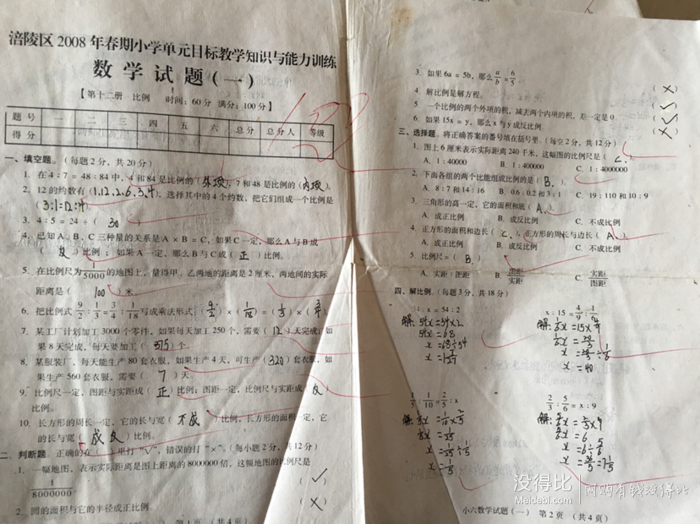 涪陵区2008年春期小学单元目标教学知识与能力训练
数学试题(一)
【第十二册 比例 时间:60分 满分:100分】
题号 一 二 三 四 五 六 总分 总分人 等级
得分
一、填空题。(每题2分,共20分)
1. 在4:7=48:84中,4和84是比例的(外项),7和48是比例的(内项)
2. 12的约数有(1,12,2,6,3,4),选择其中的4个约数,把它们组成一个比例是
(3:1=12:4)
3. 4:5=24÷(30
4. 已知A、B、C三种量的关系是A×B=C,如果C一定,那么A与B成
(反)比例;如果A一定,那么B与C成(正)比例。
5. 在比例尺为 5000的地图上,量得甲、乙两地的距离是2厘米,两地间的实际
距离是(100)米
6. 把比例式 9/2:1/3=3/4:1/18写成乘法形式
7. 某工厂计划加工3000个零件,如果每天加工250个,需要(12)天完成;如
果8天完成,每天要加工(375)个。
8. 某服装厂、每天能生产80套衣服,如果生产4天,可生产(320)套衣服,如
果生产560套衣服,需要(7)天。
9. 比例尺一定,图距与实距成(正)比例;图距一定,比例尺与实距成 反
比例。
10. 长方形的周长一定,它的长与宽(不成)比例,长方形的面积一定,它
的长与宽 成反)比例。
二、判断题。正确的在 里打“√”,错误的打“×”。(每小题2分,共12分)
1. 一幅地图,表示实际距离是图上距离的8000000倍。这幅地图的比例尺是
1/8000000 (√)
2. 圆的面积与它的半径成正比例 (×)
第1页 (共4页)
3. 如果6a=5b,那么a/b=6/5 (×)
4. 解比例是解方程。 (√)
5. 一个比例的两个外项的积,减去两个内项的积,差一定是0 (√)
6. 如果15x=y,那么x与y成反比例。 (×)
三、选择题。将正确答案的番号填在括号里。(每空2分,共12分)
1. 图上6厘米表示实际距离240千米,这幅图的比例尺是(C.)
A. 1:40000 B. 1:400000 C. 1:4000000
2. 下面各组的两个比能组成比例的是(B.)
A. 8:7和14:16 B. 0.6:0.2和3:1 C. 19:110和10:9
3. 三角形的高一定,它的面积和底(A.)
A. 成正比例 B. 成反比例 C. 不成比例
4. 正方形的面积和边长(C.),正方形的周长与边长(A.)
A. 成正比例 B. 成反比例 C. 不成比例
5. 比例尺=(B.)
A. 实距:图距 B. 图距/实距 C. 实距/图距
四、解比例。(每题3分,共18分)
x=54:2
x:15=4/9:1/6
1/5:1/10=2/5:x
2/3:5/6=x:9
小六数学试题(一) 第2页 (共4页)
没得比